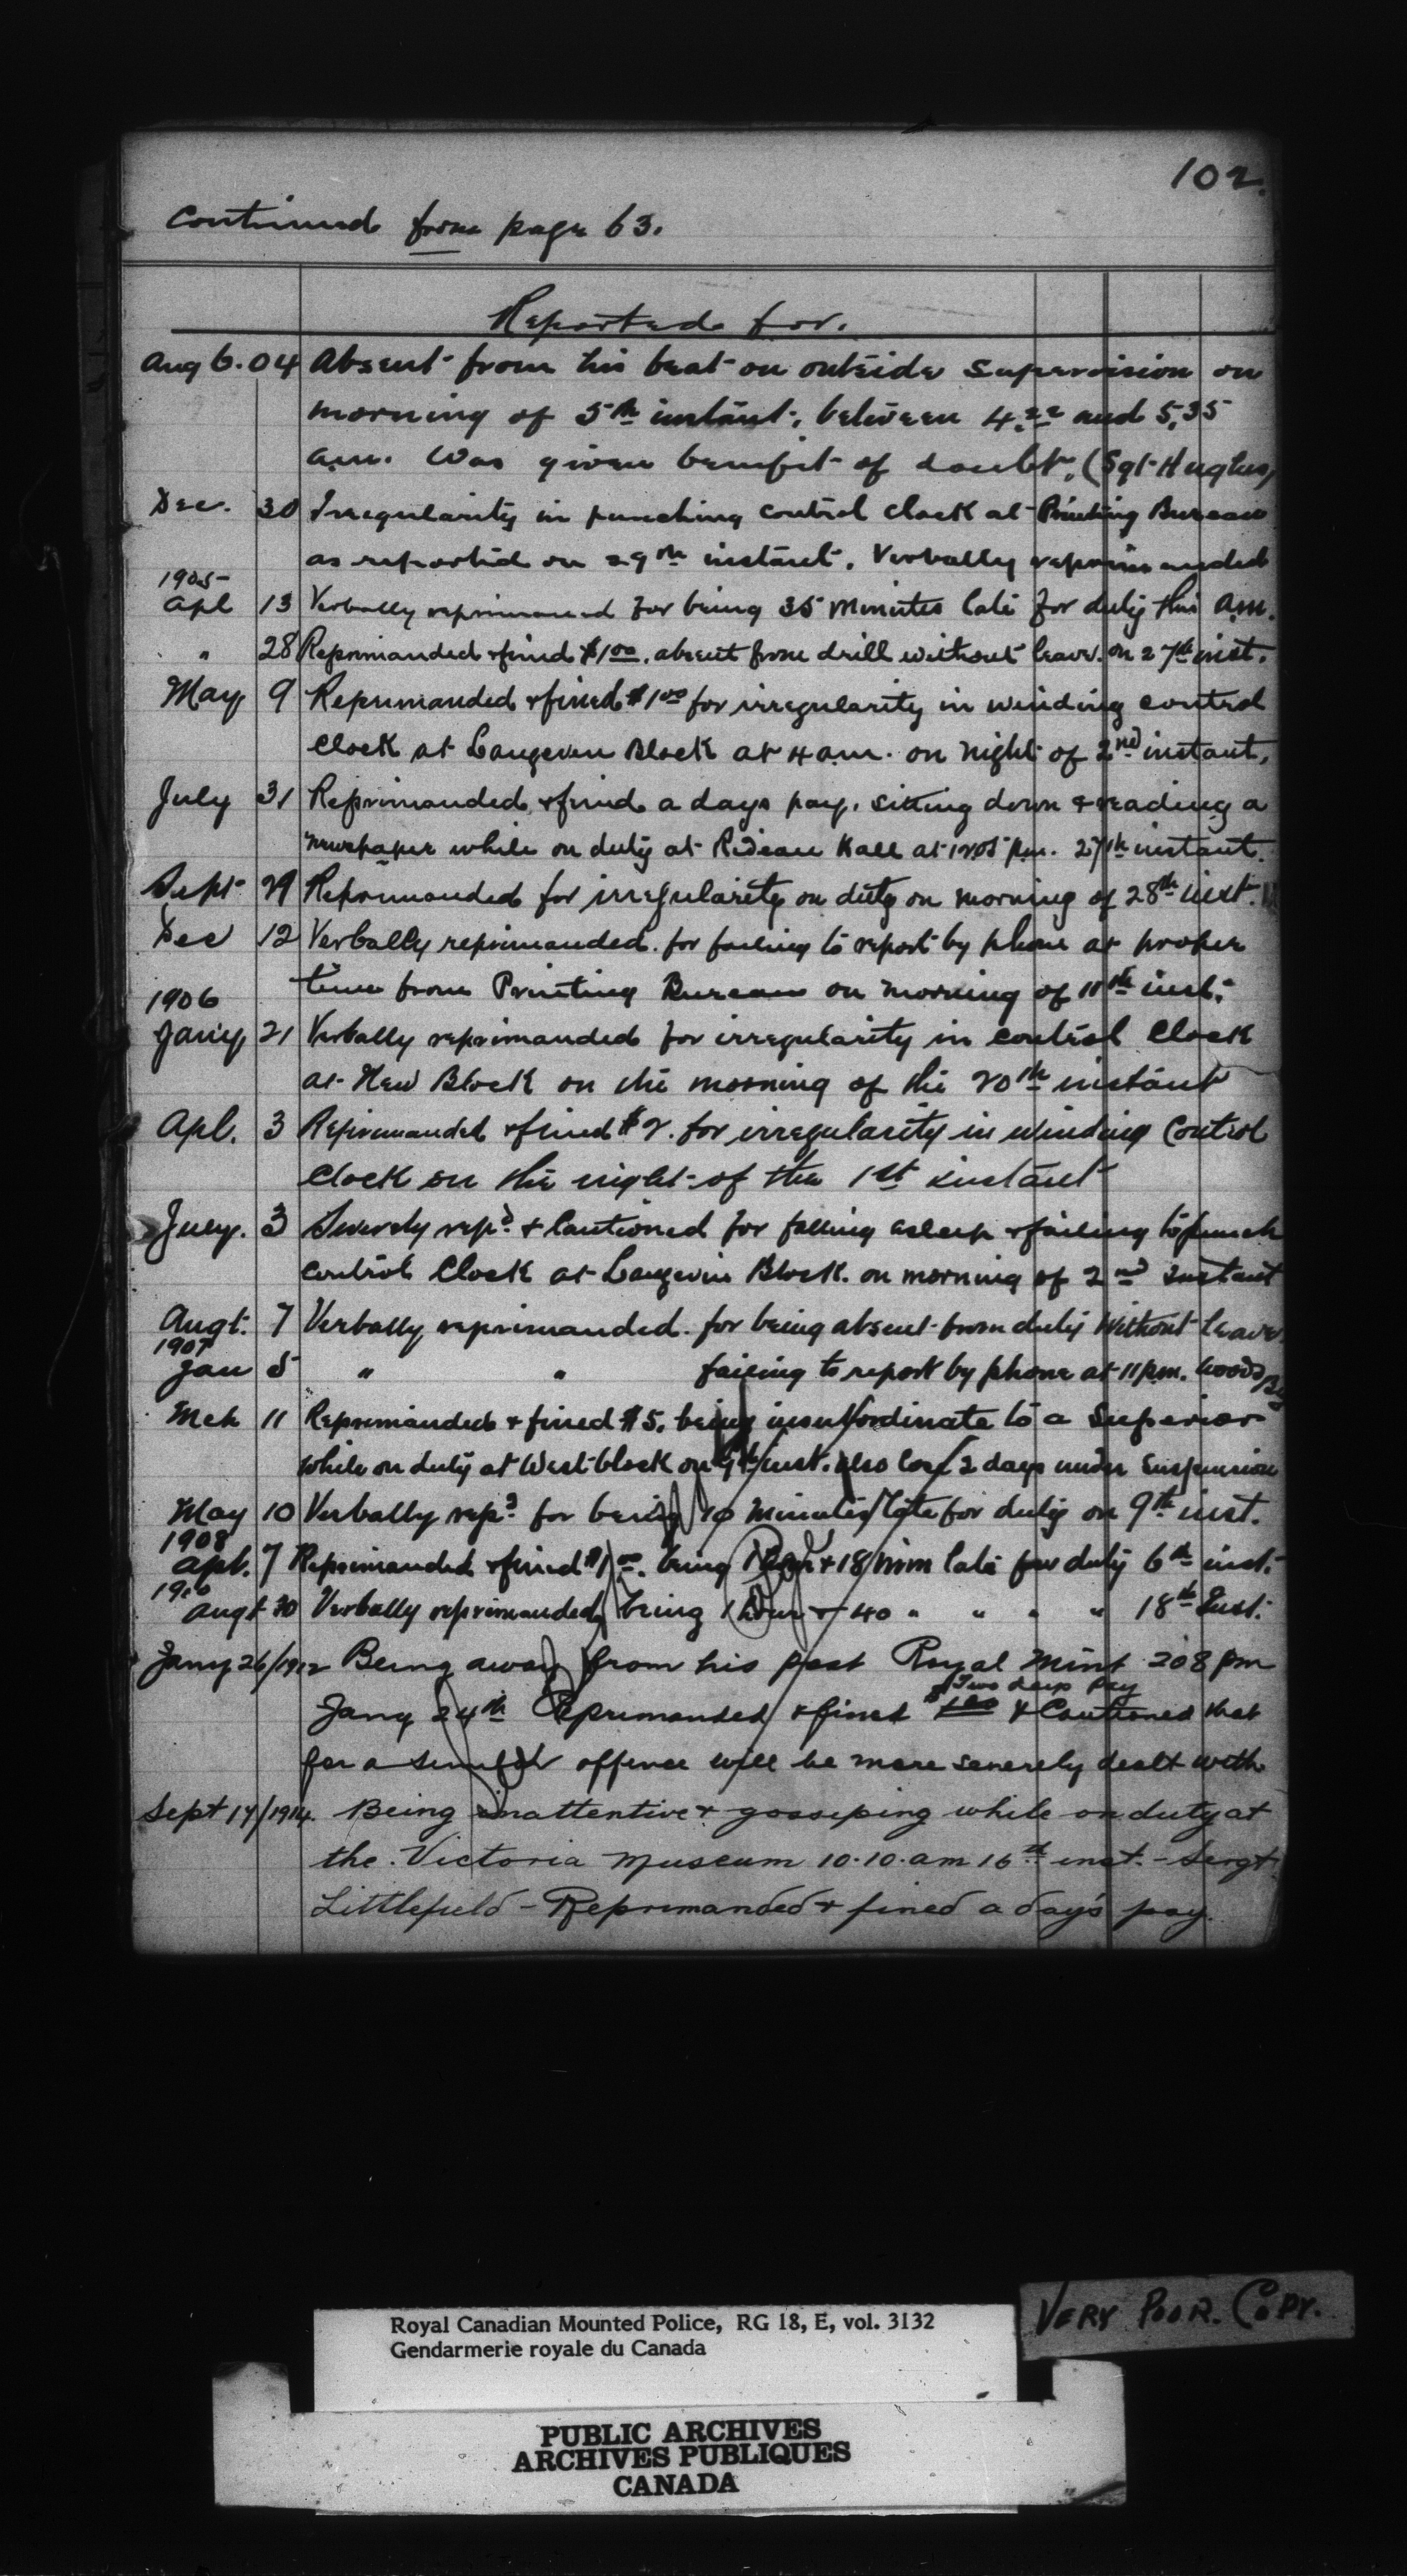 102.
Continued from page 63.
Reported for.
Aug 6. 04 Absent from his beat on outside supervision on
morning of 5th instant, between 4.22 and 5.35
a.m. Was given benefit of doubt. (Sgt Hughes)
Dec. 30 Irregularity in punching control clock at Printing Bureau
as reported on 29th instant. Verbally reprimanded
1905
Apl 13 Verbally reprimanded for being 35 minutes late for duty this a.m.
" 28 Reprimanded & fined $1.00. absent from drill without leave. on 27th inst.
May 9 Reprimanded & fined $1.00 for irregularity in winding control
Clock at Langevin Block at 4 a.m. on night of 2nd instant.
July 31 Reprimanded & fined a days pay. Sitting down & reading a
newspaper while on duty at Rideau Hall at 12.05 p.m. 27th instant.
Sept 29 Reprimanded for irregularity on duty on morning of 28th inst.
Dec 12 Verbally reprimanded. for failing to report by phone at proper
time from Printing Bureau on morning of 11th inst.
1906
Jany 21 Verbally reprimanded for irregularity in control Clock
at New Block on the morning of the 20th instant
Apl. 3 Reprimanded & fined $2. for irregularity in winding Control
Clock on the night of the 1st instant
July. 3 Severely repd. & Cautioned for falling asleep & failing to punch
control Clock at Langevin Block. on morning of 2nd Instant
Augt. 7 Verbally reprimanded. for being absent from duty without leave.
1907
Jan 5 " " failing to report by phone at 11 p.m. Woods
Mch 11 Reprimanded & fined $5. being insubordinate to a Superior
while on duty at West block on 9th inst. also lost 2 days under Suspension
May 10 Verbally repd. for being 10 minutes late for duty on 9th inst.
1908
Apl. 7 Reprimanded & fined $1.00. being 1 hour & 18 min late for duty 6th inst.
1910
Augt 20 Verbally reprimanded, being 1 hour & 40 " " " " 18th Inst.
Jany 26/1912 Being away from his post Royal Mint 2.08 pm
Two days pay
Jany 24th Reprimanded & fined & Cautioned that
for a similar offence will be more severely dealt with
Sept 17/1914. Being inattentive & gossiping while on duty at
the Victoria Museum 10.10. am 16th inst. - Sergt.
Littlefield - Reprimanded & fined a day's pay.
VERY POOR. COPY.
Royal Canadian Mounted Police, RG 18, E, vol. 3132
Gendarmerie royale du Canada
PUBLIC ARCHIVES
ARCHIVES PUBLIQUES
CANADA